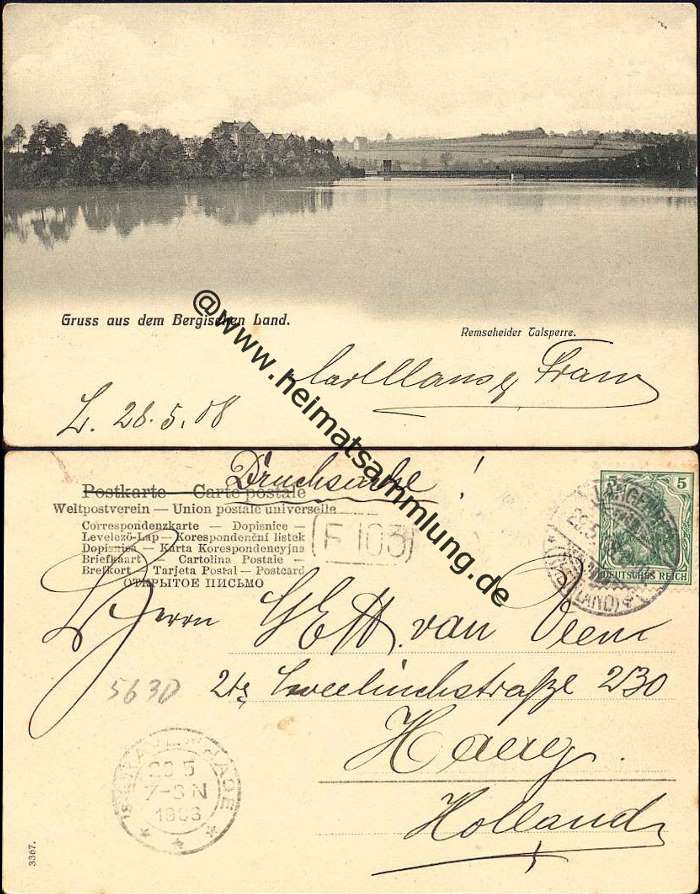 Gruss aus dem Bergischen Land.
Remscheider Talsperre.
Franz
L. 28.5.08
@www.heimatsammlung.de
Drucksache!
Postkarte — Carte postale
Weltpostverein — Union postale universelle
Correspondenzkarte — Dopisnice —
Levelező-Lap — Korespondenční lístek
Dopisnica — Karta Korespondencyjna
Briefkaart — Cartolina Postale —
Brefkort — Tarjeta Postal — Postcard
ОТКРЫТОЕ ПИСЬМО
F 103
5 5
DEUTSCHES REICH
LAND)
Herrn van
5630
230
Haag.
Holland
'S-GRAVENHAGE
7-8 N
3367.